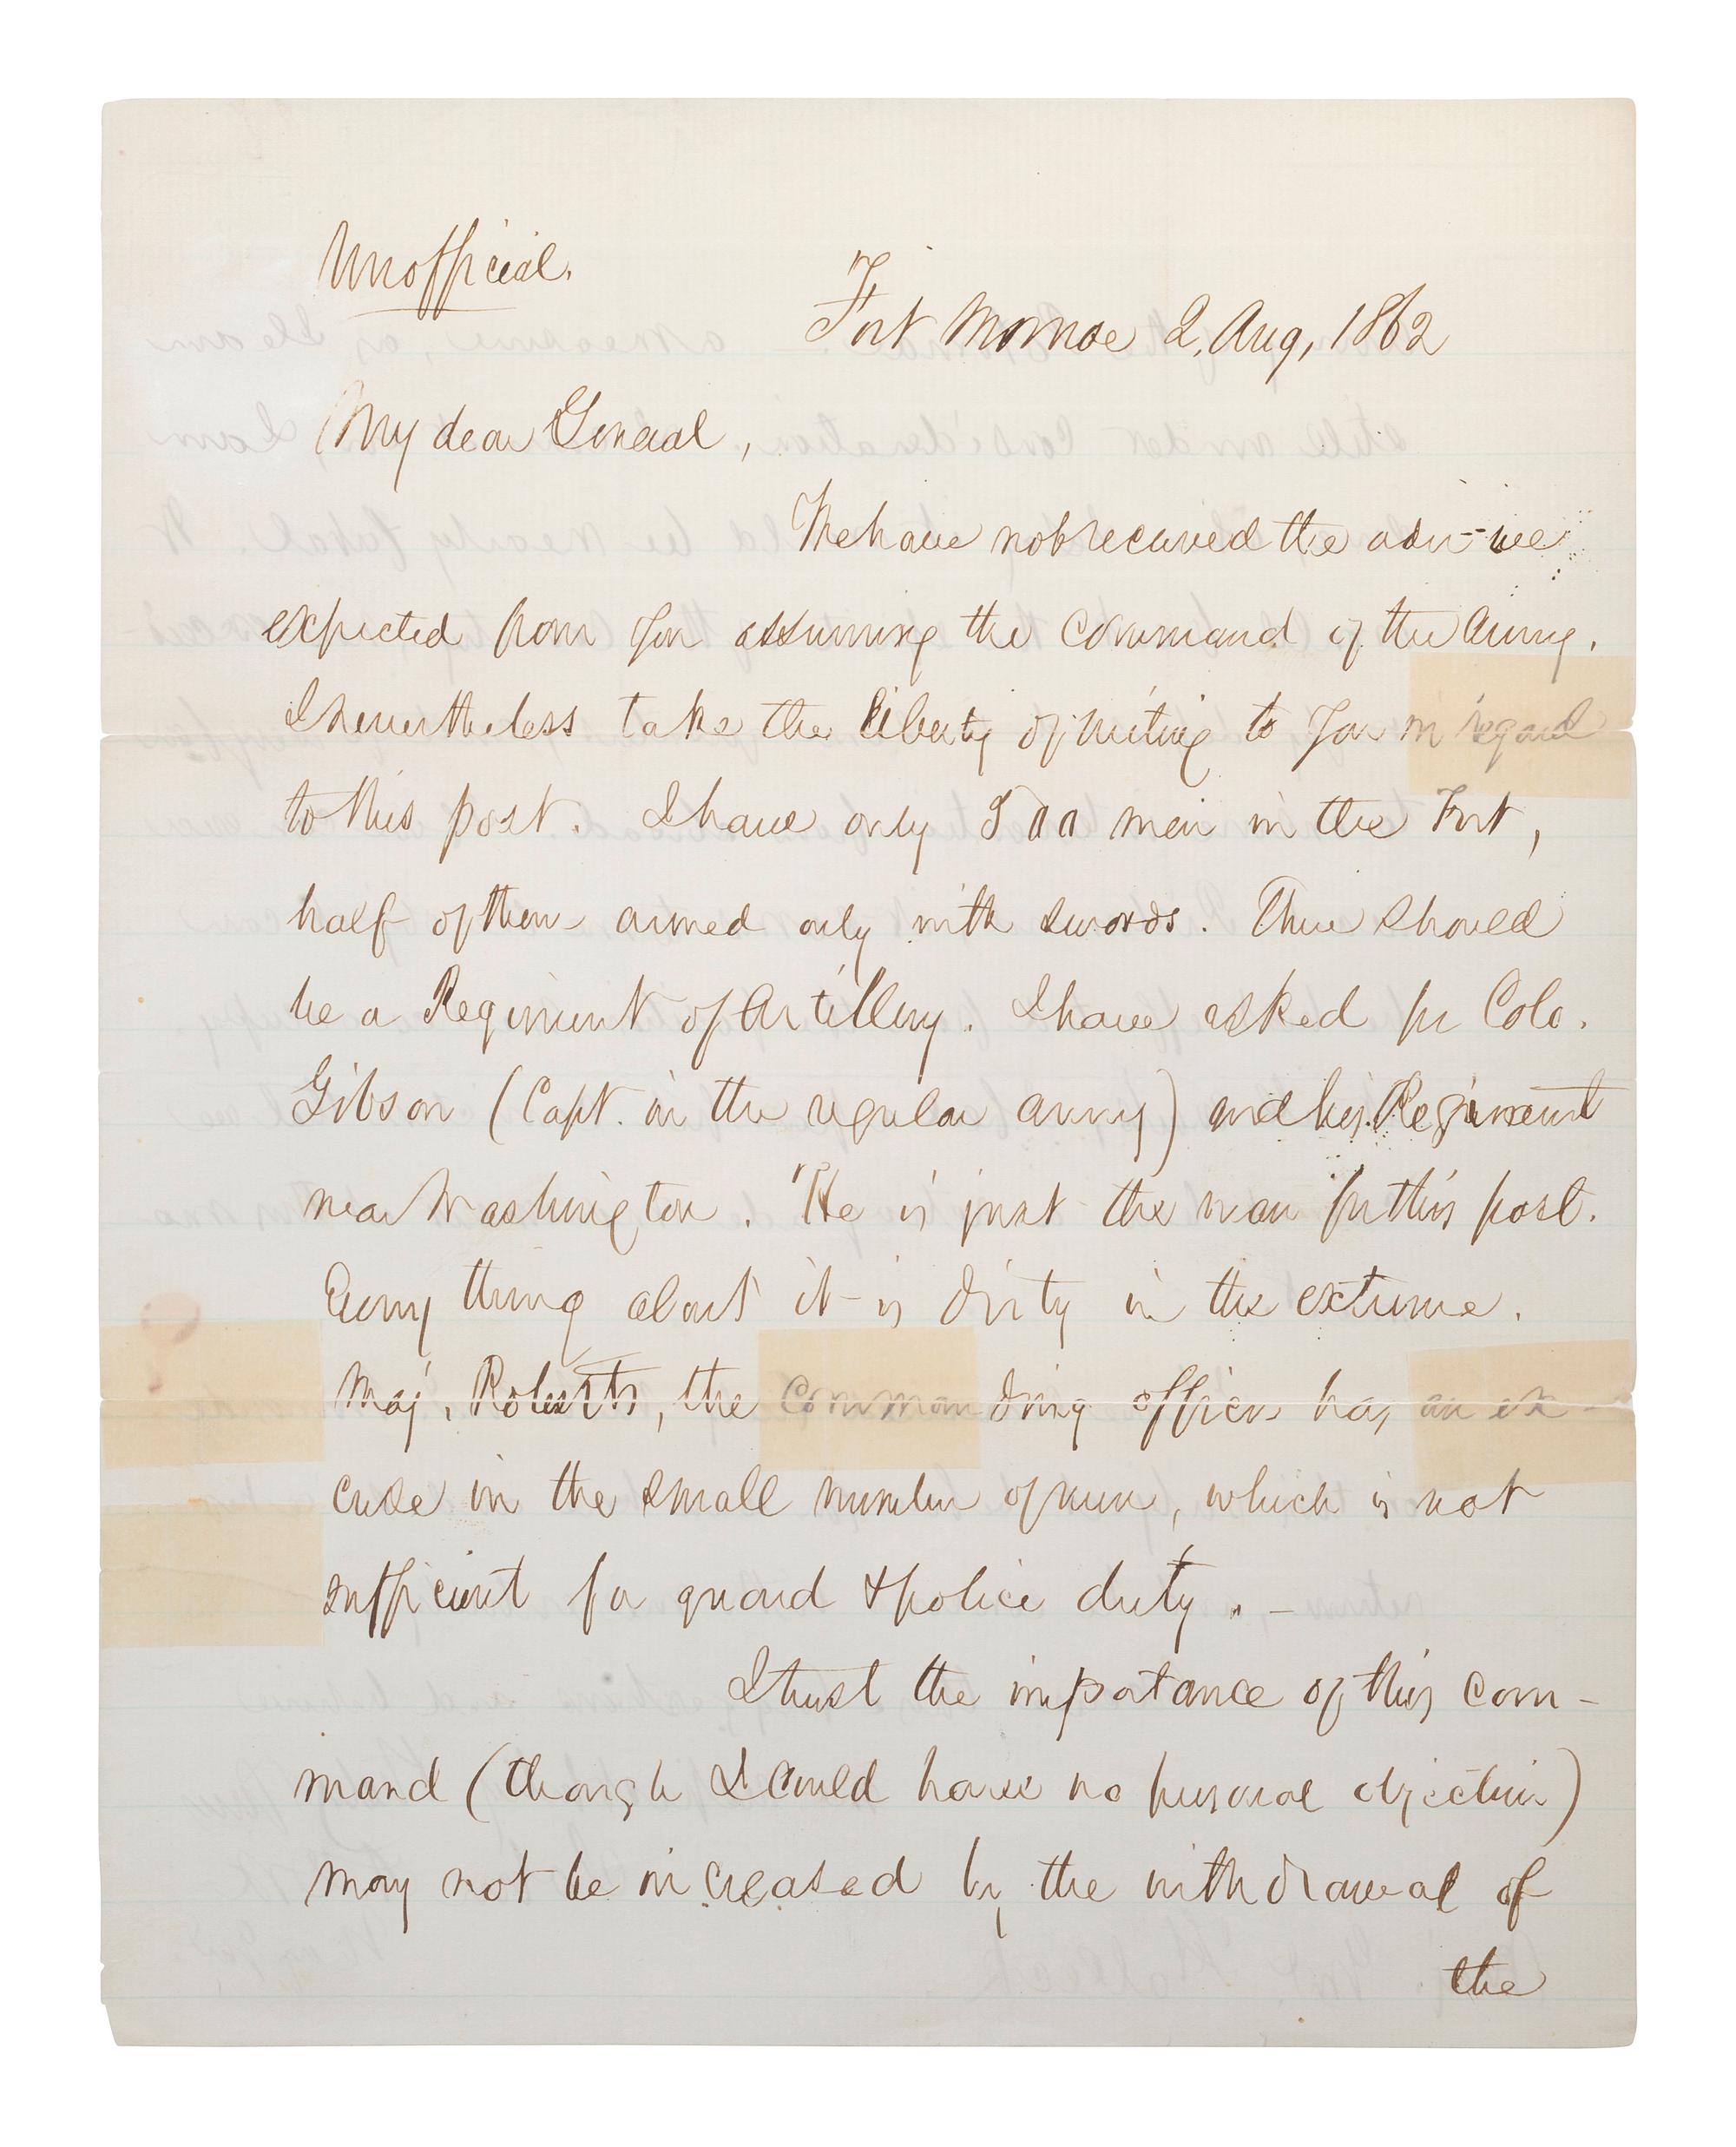 Unofficial.
Fort Monroe 2, Aug, 1862
My dear General,
We have not received the advice
expected from you assuming the command of the Army.
I nevertheless take the liberty of writing to you in regard
to this post. I have only 500 men in the Fort,
half of them armed only with swords. There should
be a Regiment of Artillery. I have asked for Colo.
Gibson (Capt. in the regular army) and his Regiment
near Washington. He is just the man for this post.
Every thing about it is dirty in the extreme.
Maj. Roberts, the Commanding officer has an ex-
cuse in the small number of men, which is not
sufficient for guard & police duty. -
I trust the importance of this com-
mand (though I could have no personal objection)
may not be increased by the withdrawal of
the